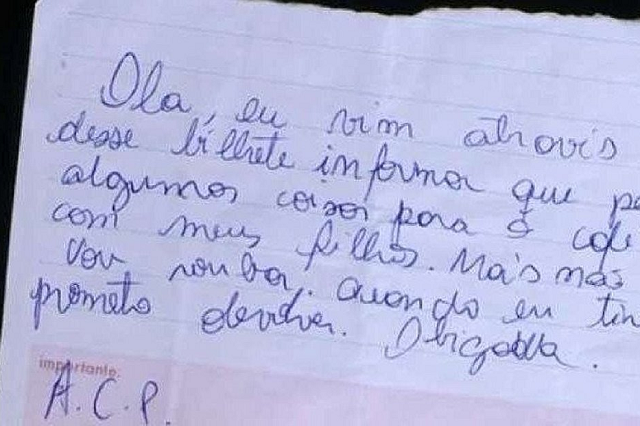 Ola, eu vim atravis
desse bilhete informar que
algumas coisas para o
com meus filhos. Mais nas
vou rouba. Quando eu tin
prometo devolver. Obrigada.
importante:
A.C.P.